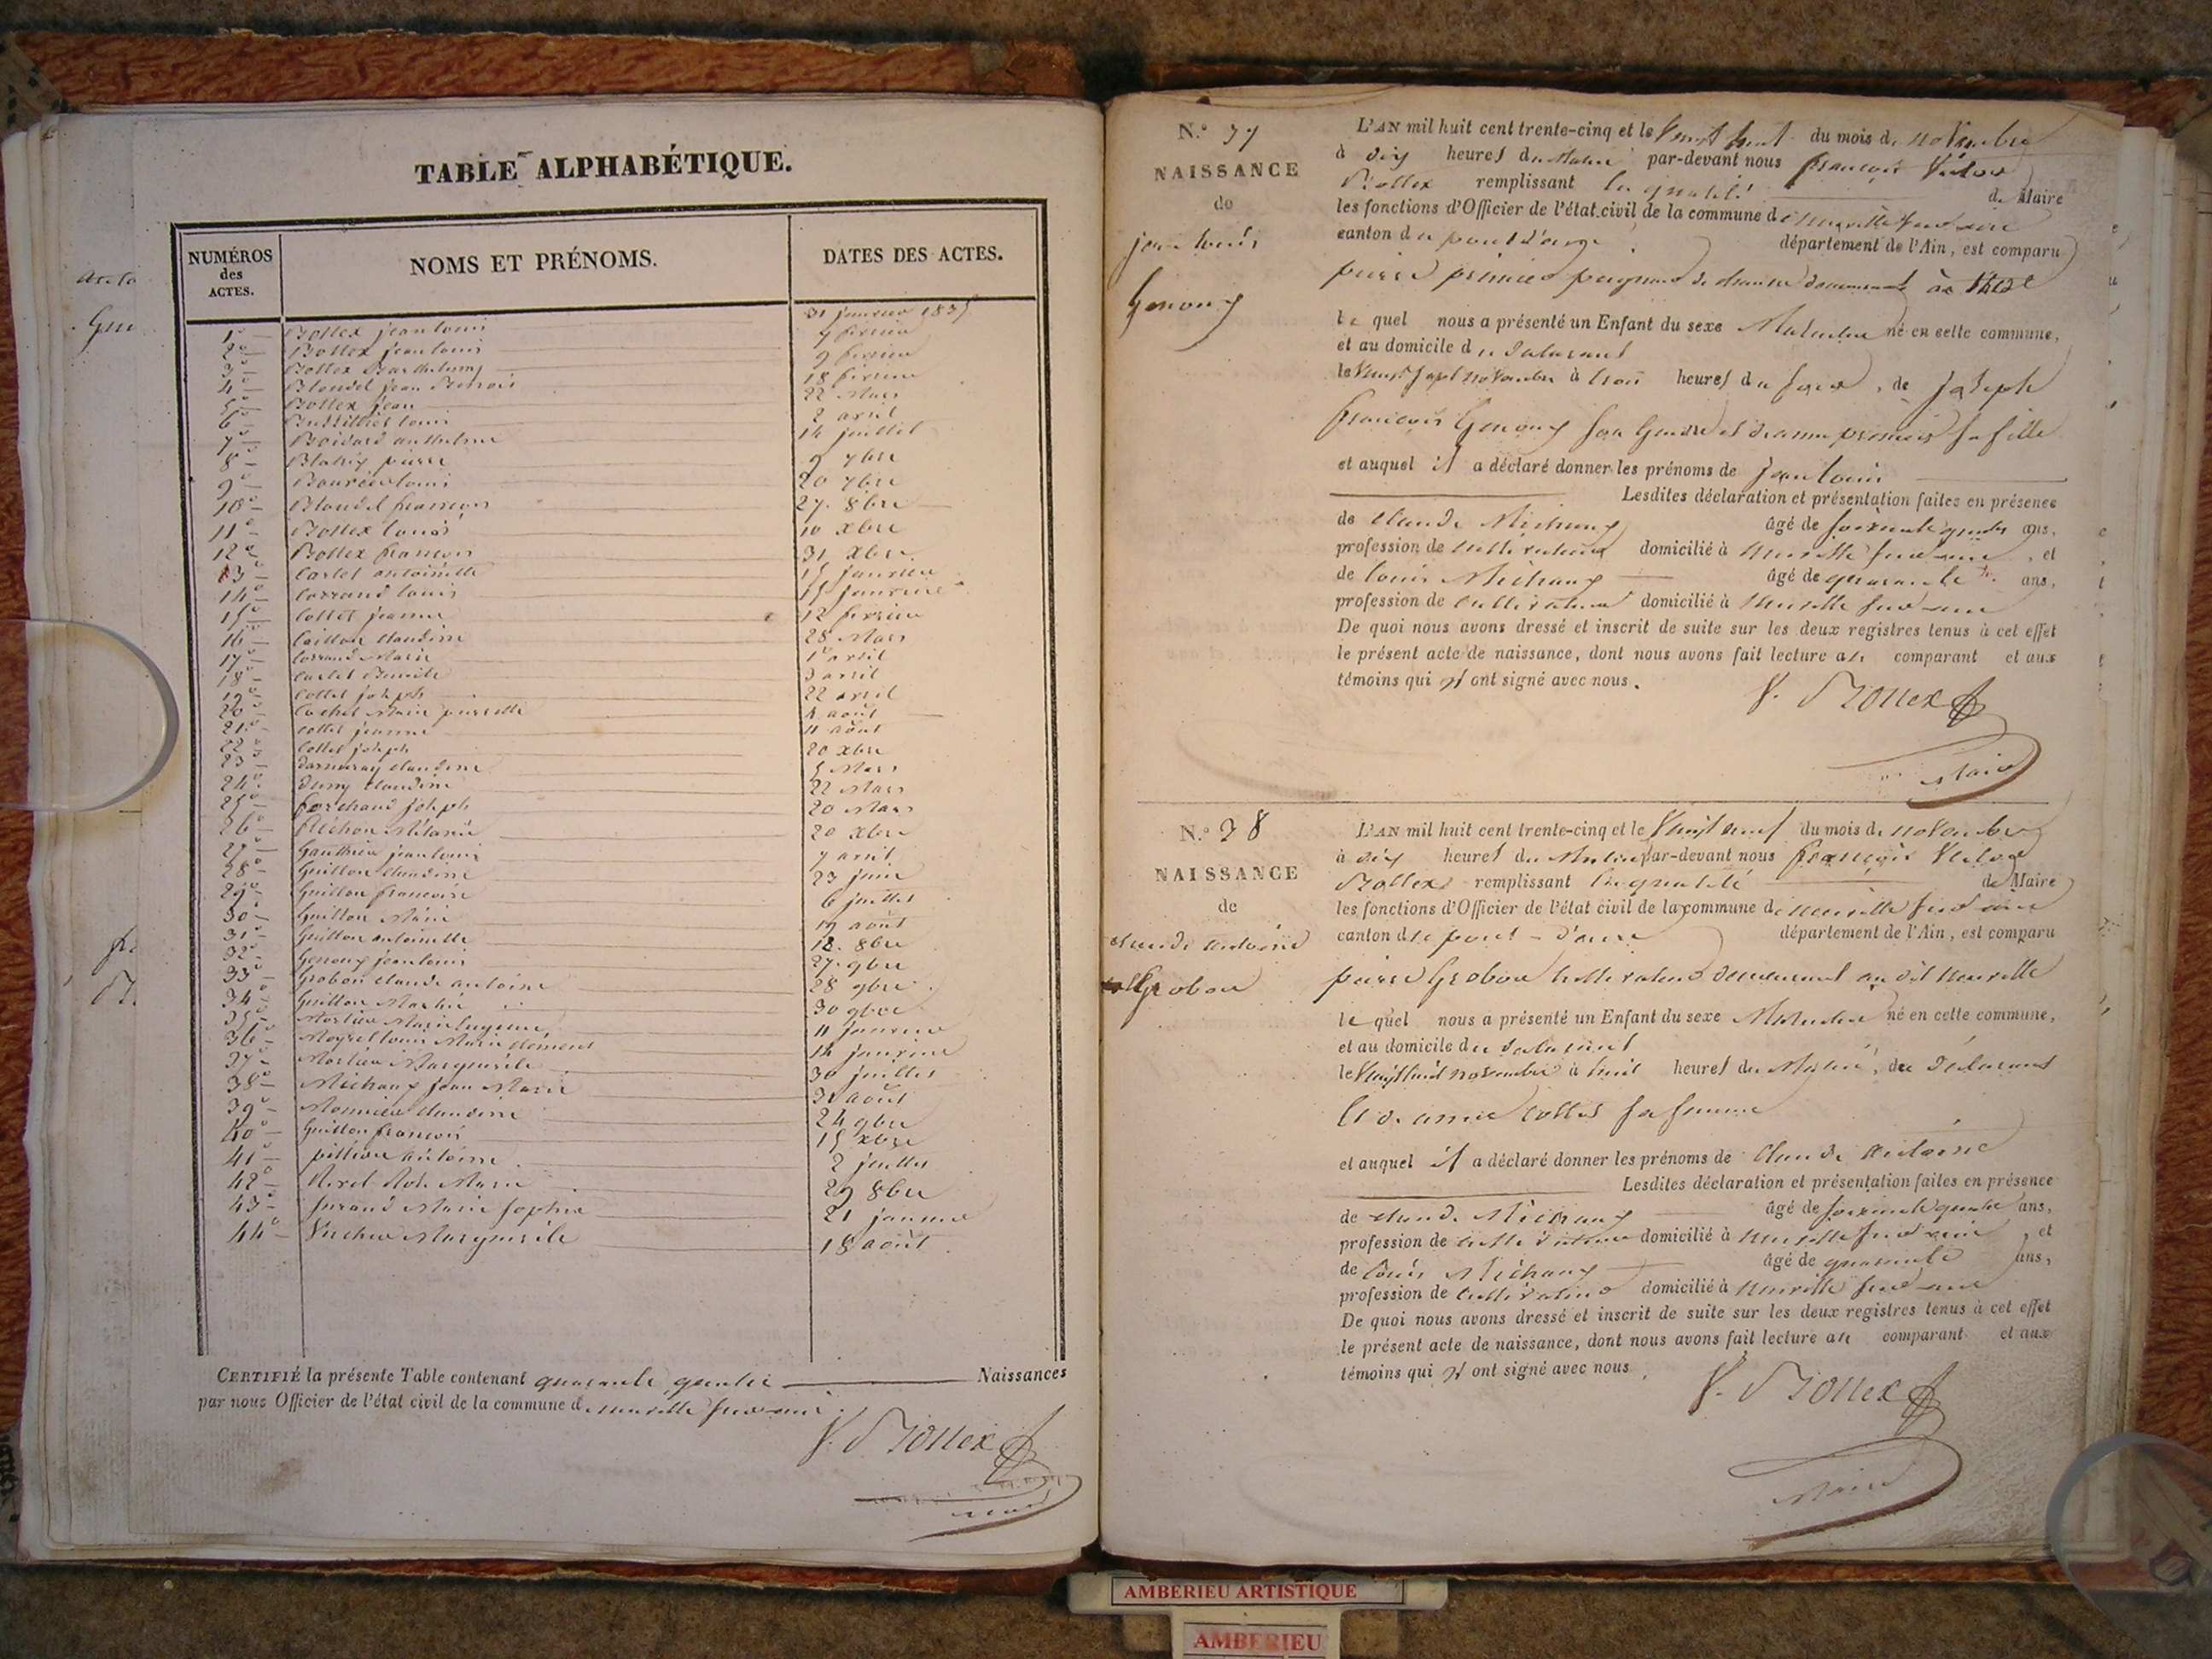 TABLE ALPHABÉTIQUE.
NUMÉROS des ACTES.
NOMS ET PRÉNOMS.
DATES DES ACTES.
1° Bollex jean louis 31 janvier 1835
2° Bollex jean louis 7 février
3° Bollex Barthelemy 9 février
4° Blondel jean 18 février
5° Bollex jean 22 Mars
6° louis 2 avril
7° anthelme 14 juillet
8° pierre 9 7bre
9° louis 20 7bre
10° Blondel françois 27. 8bre
11° Bollex louis 10 xbre
12° Bollex françois 31 xbre
13° Carlet antoinette 15 janvier
14° Corrand louis 15 janvier
15° Collet jeanne 12 février
16° Caillon claudine 28 Mars
17° Corrand Marie 1er avril
18° Carlet 3 avril
19° Collet joseph 22 avril
20° Cochet Marie pierrette 4 août
21° Collet jeanne 11 août
22° Collet joseph 20 xbre
23° claudine 5 Mars
24° claudine 22 Mars
25° joseph 20 Mars
26° Mélanie 20 xbre
27° Gauthier jean louis 7 avril
28° Guillon claudine 23 juin
29° Guillon françoise 6 juillet
30° Guillon Marie 19 août
31° Guillon antoinette 12. 8bre
32° Genoux jean louis 27. 9bre
33° Grobon claude antoine 28 9bre
34° Guillon 30 9bre
35° Marie 11 janvier
36° louis Marie clément 14 janvier
37° Marguerite 30 juillet
38° Michaux jean Marie 31 août
39° Monnier claudine 24 9bre
40° Guillon françois 15 xbre
41° antoine 2 juillet
42° Marie 29 8bre
43° Marie Sophie 21 janvier
44° Vucher Marguerite 18 août
CERTIFIÉ la présente Table contenant quarante quatre Naissances
par nous Officier de l'état civil de la commune de neuville sur ain.
V. Bollex
N.° 37
NAISSANCE
de
jean louis
Genoux
L'AN mil huit cent trente-cinq et le Vingt huit du mois de novembre
à dix heures du Matin par-devant nous françois Victor
Bollex remplissant en qualité de Maire
les fonctions d'Officier de l'état civil de la commune de neuville sur ain
canton du pont d'ain département de l'Ain, est comparu
pierre premier peigneur de chanvre demeurant à
le quel nous a présenté un Enfant du sexe Masculin né en cette commune,
et au domicile du déclarant
le Vingt sept novembre à trois heures du soir, de joseph
françois Genoux son Gendre et d'anne premier sa fille
et auquel il a déclaré donner les prénoms de jean louis
Lesdites déclaration et présentation faites en présence
de claude Michaux âgé de soixante quatre ans,
profession de cultivateur domicilié à neuville sur ain, et
de louis Michaux âgé de quarante ans,
profession de cultivateur domicilié à neuville sur ain
De quoi nous avons dressé et inscrit de suite sur les deux registres tenus à cet effet
le présent acte de naissance, dont nous avons fait lecture au comparant et aux
témoins qui n'ont signé avec nous.
V. Bollex
Maire
N.° 38
NAISSANCE
de
claude antoine
Grobon
L'AN mil huit cent trente-cinq et le Vingt neuf du mois de novembre
à dix heures du Matin par-devant nous françois Victor
Bollex remplissant en qualité de Maire
les fonctions d'Officier de l'état civil de la commune de neuville sur ain
canton de pont-d'ain département de l'Ain, est comparu
pierre Grobon cultivateur demeurant au dit neuville
le quel nous a présenté un Enfant du sexe Masculin né en cette commune,
et au domicile du déclarant
le Vingt huit novembre à huit heures du Matin, du déclarant
et d'anne collet sa femme
et auquel il a déclaré donner les prénoms de claude antoine
Lesdites déclaration et présentation faites en présence
de claude Michaux âgé de soixante quatre ans,
profession de cultivateur domicilié à neuville sur ain, et
de louis Michaux âgé de quarante ans,
profession de cultivateur domicilié à neuville sur ain
De quoi nous avons dressé et inscrit de suite sur les deux registres tenus à cet effet
le présent acte de naissance, dont nous avons fait lecture au comparant et aux
témoins qui n'ont signé avec nous.
V. Bollex
Maire
AMBERIEU ARTISTIQUE
AMBERIEU